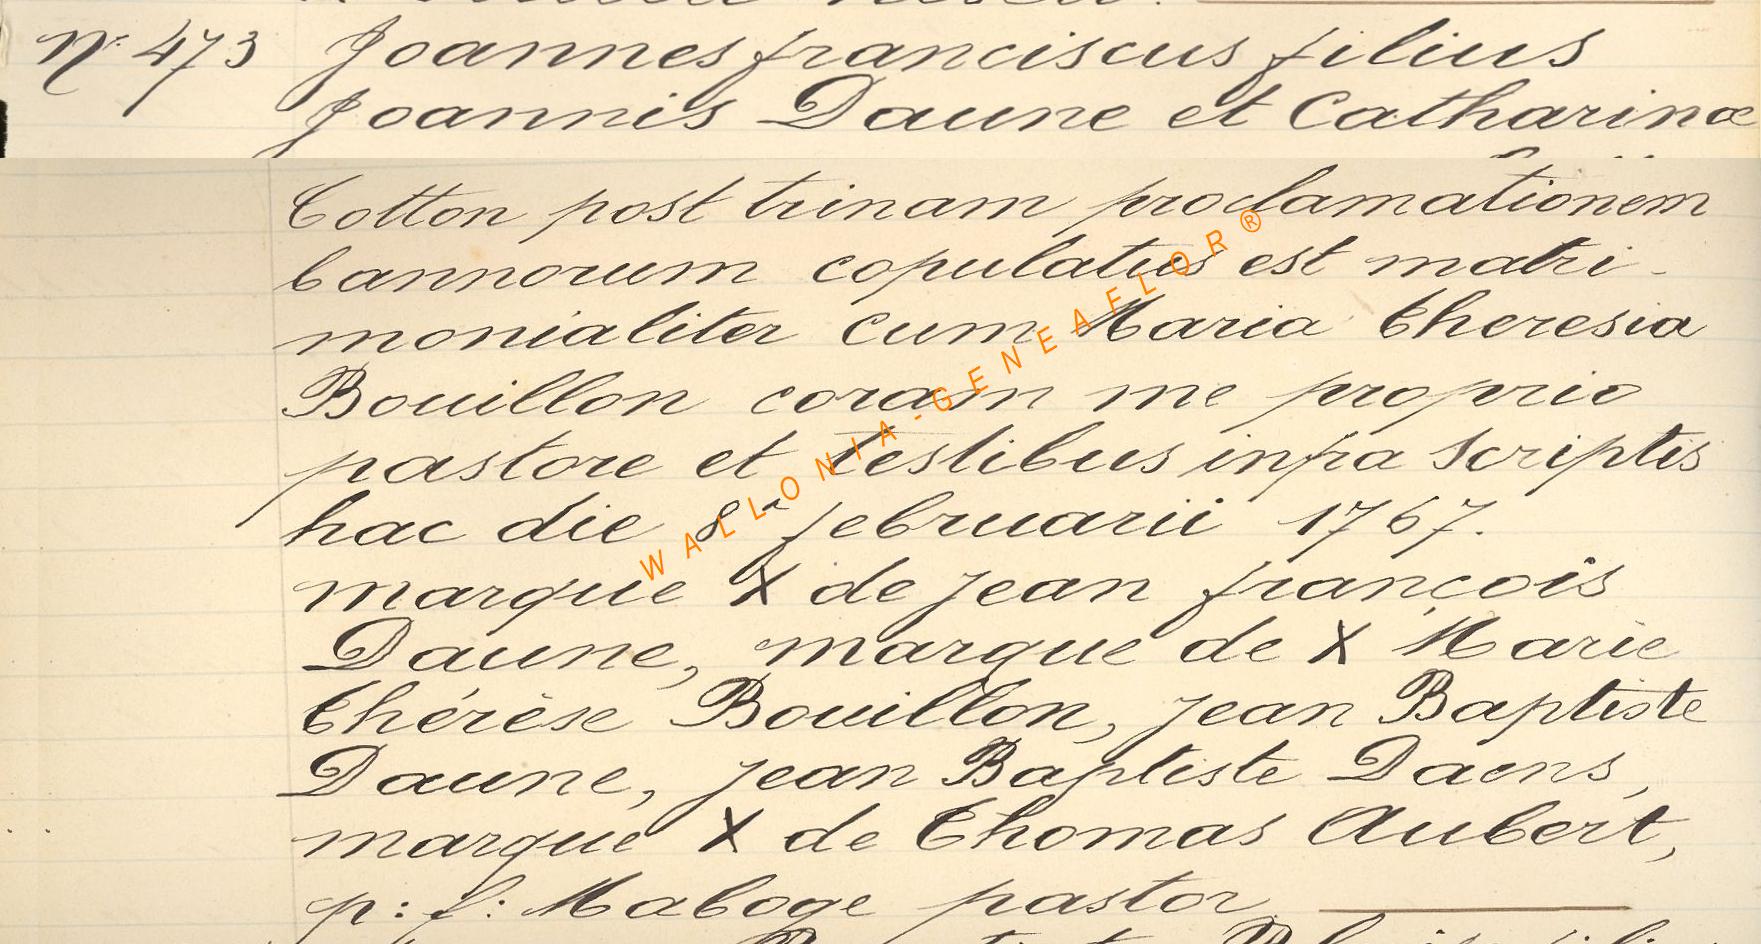 N° 473 Joannes franciscus filius
Joannis Daune et Catharinæ
Cotton post trinam proclamationem
bannorum copulatus est matri-
monialiter cum Maria Theresia
Bouillon coram me proprio
pastore et testibus infra scriptis
hac die 8a februarii 1767.
marque X de jean françois
Daune, marque de X Marie
Thérèse Bouillon, jean Baptiste
Daune, jean Baptiste Daens,
marque X de Thomas Aubert,
p: f: Maboge pastor
WALLONIA-GENEAFLOR®